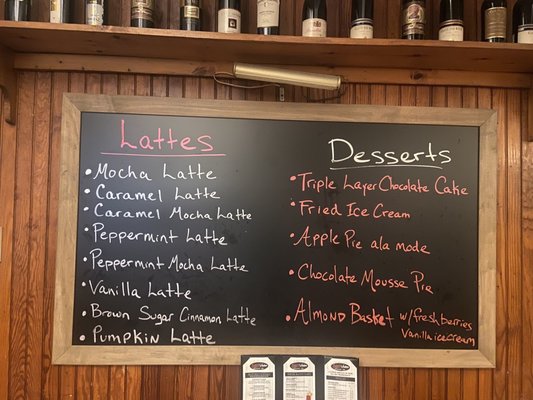 Lattes
• Mocha Latte
• Caramel Latte
• Caramel Mocha Latte
• Peppermint Latte
• Peppermint Mocha Latte
• Vanilla Latte
• Brown Sugar Cinnamon Latte
• Pumpkin Latte
Desserts
• Triple Layer Chocolate Cake
• Fried Ice Cream
• Apple Pie ala mode
• Chocolate Mousse Pie
• Almond Basket w/fresh berries
Vanilla ice cream